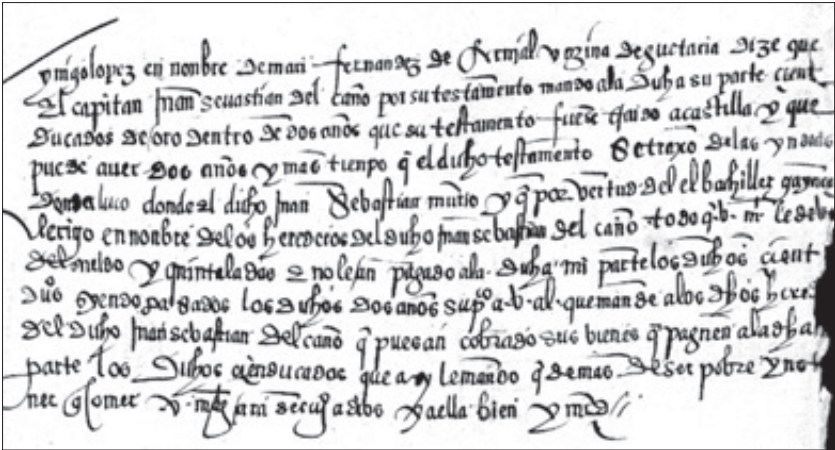 ynigo lopez en nonbre de mari fernandez de Ernial vezina de guetaria dize que
El capitan Juan Sevastian del caño por su testamento mando a la dicha su parte cient
Ducados de oro dentro de dos años que su testamento fuese traido a castilla y que
puede aver dos años y mas tienpo q el dicho testamento se traxo de las yndias
donde el dicho Juan Sebastian murio y q por vertud del el bachiller
clerigo en nonbre de los herederos del dicho Juan sebastian del caño todo q b. m. le debia
del sueldo y quintaladas e no le han pagado a la dicha mi parte los dichos cient
duos syendo pasados los dichos dos años supco a b. al. que mande a los dhos
del dicho Juan sebastian del caño q pues an cobrado sus bienes q paguen a la dha
parte los dichos cien ducados que a my le mando q demas de ser pobre y no
ner q comer v. mag ara a dios y a ella bien y mrd